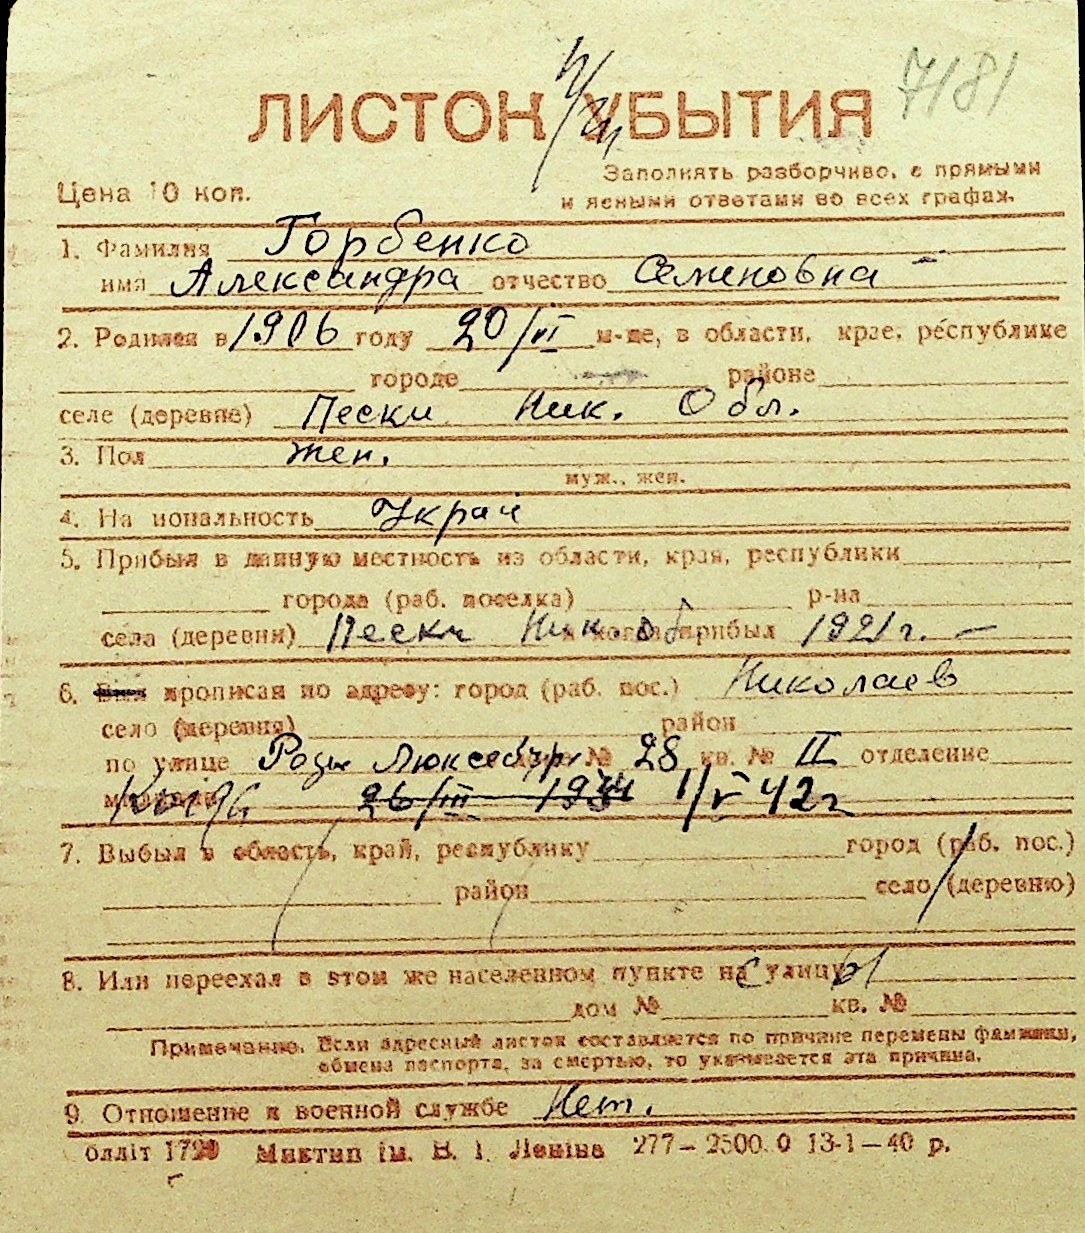 7181
ЛИСТОК УБЫТИЯ
Цена 10 коп.
Заполнять разборчиво, с прямыми
и ясными ответами во всех графах.
1. Фамилия Горбенко
имя Александра отчество Семеновна
2. Родился в 1906 году 20/VI м-це, в области, крае, республике
городе районе
селе (деревне) Пески Ник. Обл.
3. Пол жен.
муж., жен.
4. Национальность Украи
5. Прибыл в данную местность из области, края, республики
города (раб. поселка) р-на
села (деревни) Пески Ник. об прибыл 1921 г. —
6. Был прописан по адресу: город (раб. пос.) Николаев
село (деревня) район
по улице Розы Люксембург № 28 кв. № II отделение
26/III 1/V 42 г
7. Выбыл в область, край, республику город (раб. пос.)
район село (деревню)
8. Или переехал в этом же населенном пункте на улицу
дом № кв. №
Примечание. Если адресный листок составляется по причине перемены фамилии,
обмена паспорта, за смертью, то указывается эта причина.
9. Отношение к военной службе Нет.
облліт 1720 Миктип ім. В. І. Леніна 277–2500.0 13-1–40 р.